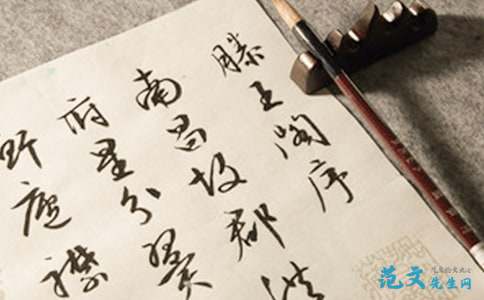 滕王阁序
南昌故郡洪
府星分翼
庐襟
范文先生网